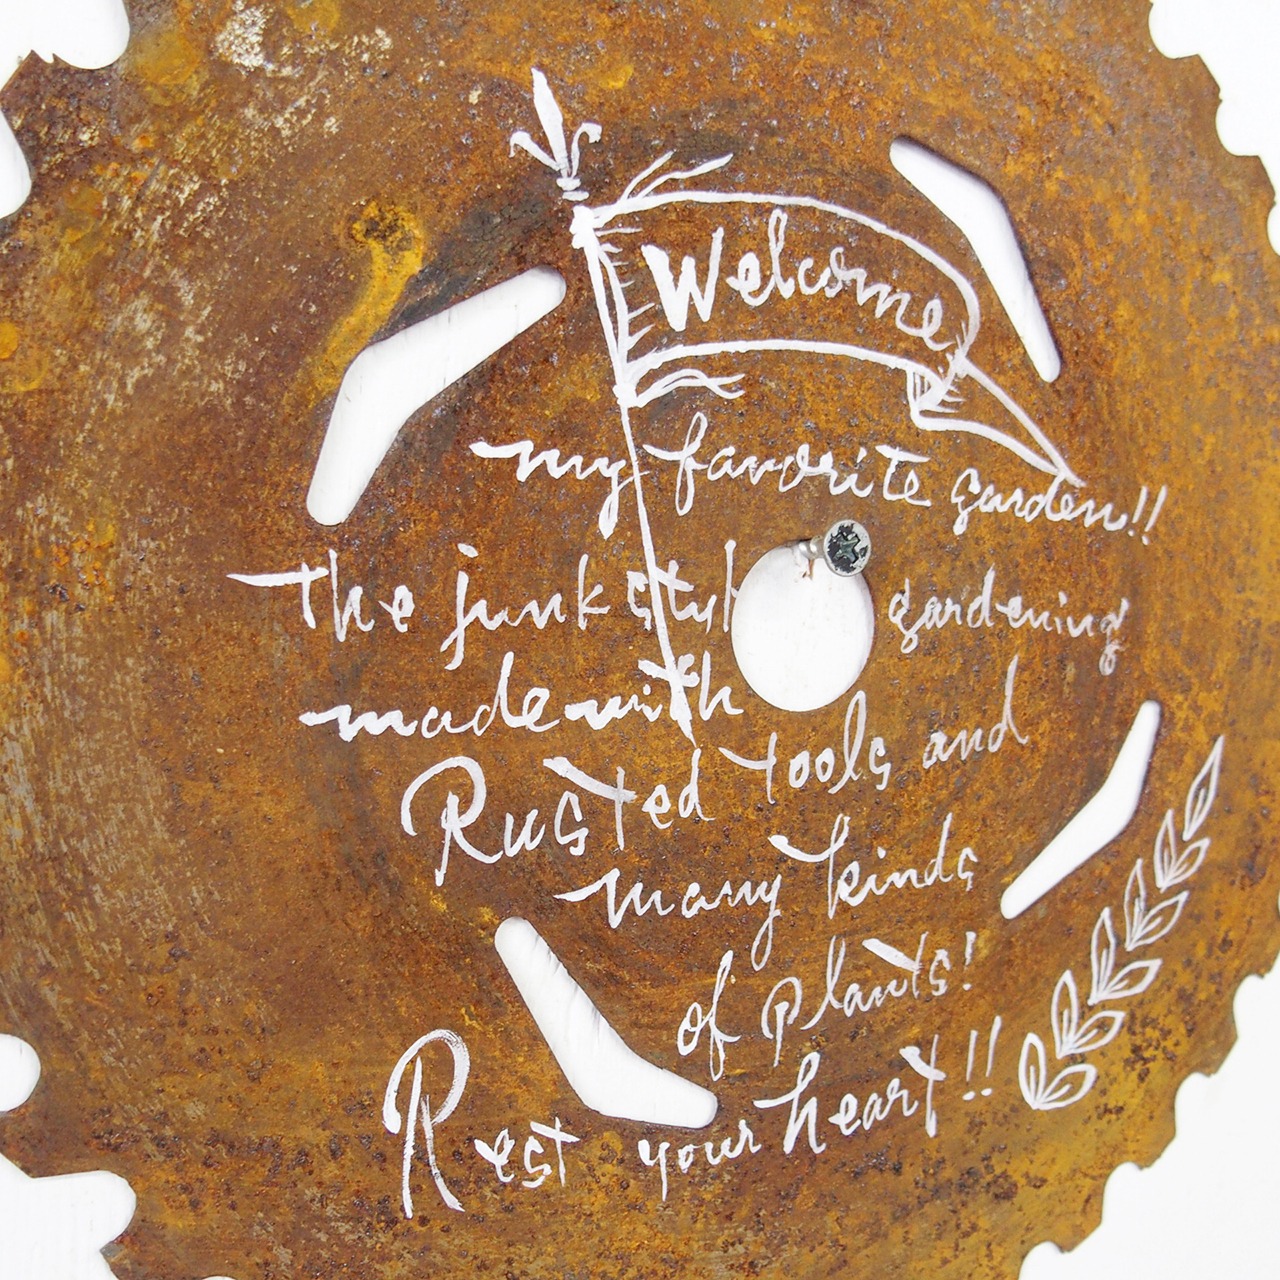 Welcome
my favorite garden!!
The junk styl gardening
made with
Rusted tools and
many kinds
of plants!
Rest your heart!!